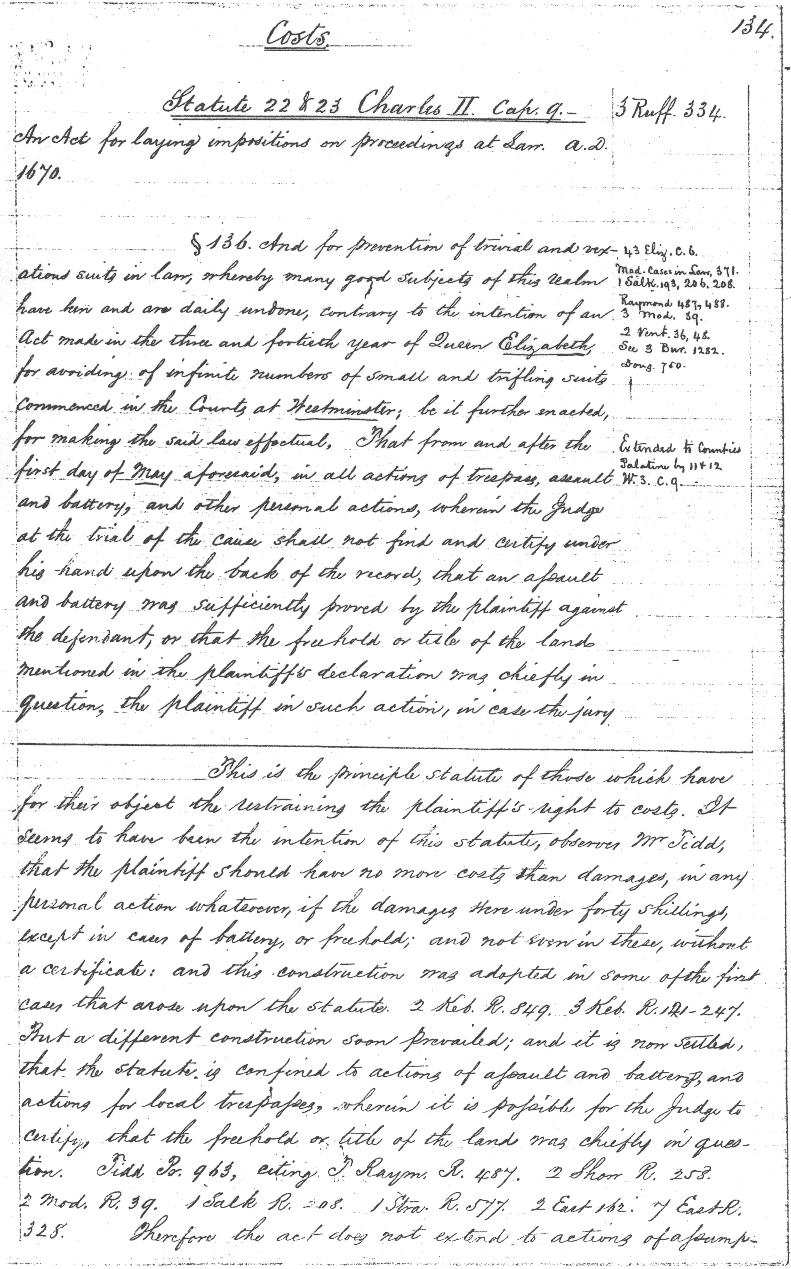 134.
Costs.
Statute 22 & 23 Charles II. Cap. 9.-
3 Ruff. 334.
An Act for laying impositions on proceedings at Law. A.D.
1670.
§ 136. And for prevention of trivial and vex-
ations suits in law, whereby many good subjects of this realm
have been and are daily undone, contrary to the intention of an
Act made in the three and fortieth year of Queen Elizabeth,
for avoiding of infinite numbers of small and trifling suits
commenced in the Courts at Westminster; be it further enacted,
for making the said law effectual, That from and after the
first day of May aforesaid, in all actions of trespass, assault
and battery, and other personal actions, wherein the Judge
at the trial of the cause shall not find and certify under
his hand upon the back of the record, that an assault
and battery was sufficiently proved by the plaintiff against
the defendant, or that the freehold or title of the land
mentioned in the plaintiff's declaration was chiefly in
question, the plaintiff in such action, in case the jury
43 Eliz. C. 6.
Mod. Cases in Law, 371.
1 Salk. 193, 206. 208.
Raymond 487, 488.
3 Mod. 39.
2 Vent. 36, 48.
See 3 Bur. 1282.
Doug. 780.
Extended to Counties
Palatine by 11 & 12
W. 3. C. 9.
This is the principle statute of those which have
for their object the restraining the plaintiff's right to costs. It
seems to have been the intention of this statute, observes Mr Tidd,
that the plaintiff should have no more costs than damages, in any
personal action whatsoever, if the damages were under forty shillings,
except in cases of battery, or freehold; and not even in these, without
a certificate: and this construction was adopted in some of the first
cases that arose upon the statute. 2 Keb. R. 849. 3 Keb. R. 121-247.
But a different construction soon prevailed; and it is now settled,
that the statute is confined to actions of assault and battery, and
actions for local trespasses, wherein it is possible for the Judge to
certify, that the freehold or title of the land was chiefly in ques-
tion. Tidd Pr. 963, citing T. Raym. R. 487. 2 Show R. 258.
2 Mod. R. 39. 1 Salk R. 208. 1 Stra. R. 577. 2 East 162. 7 East R.
328. Therefore the act does not extend to actions of assump-